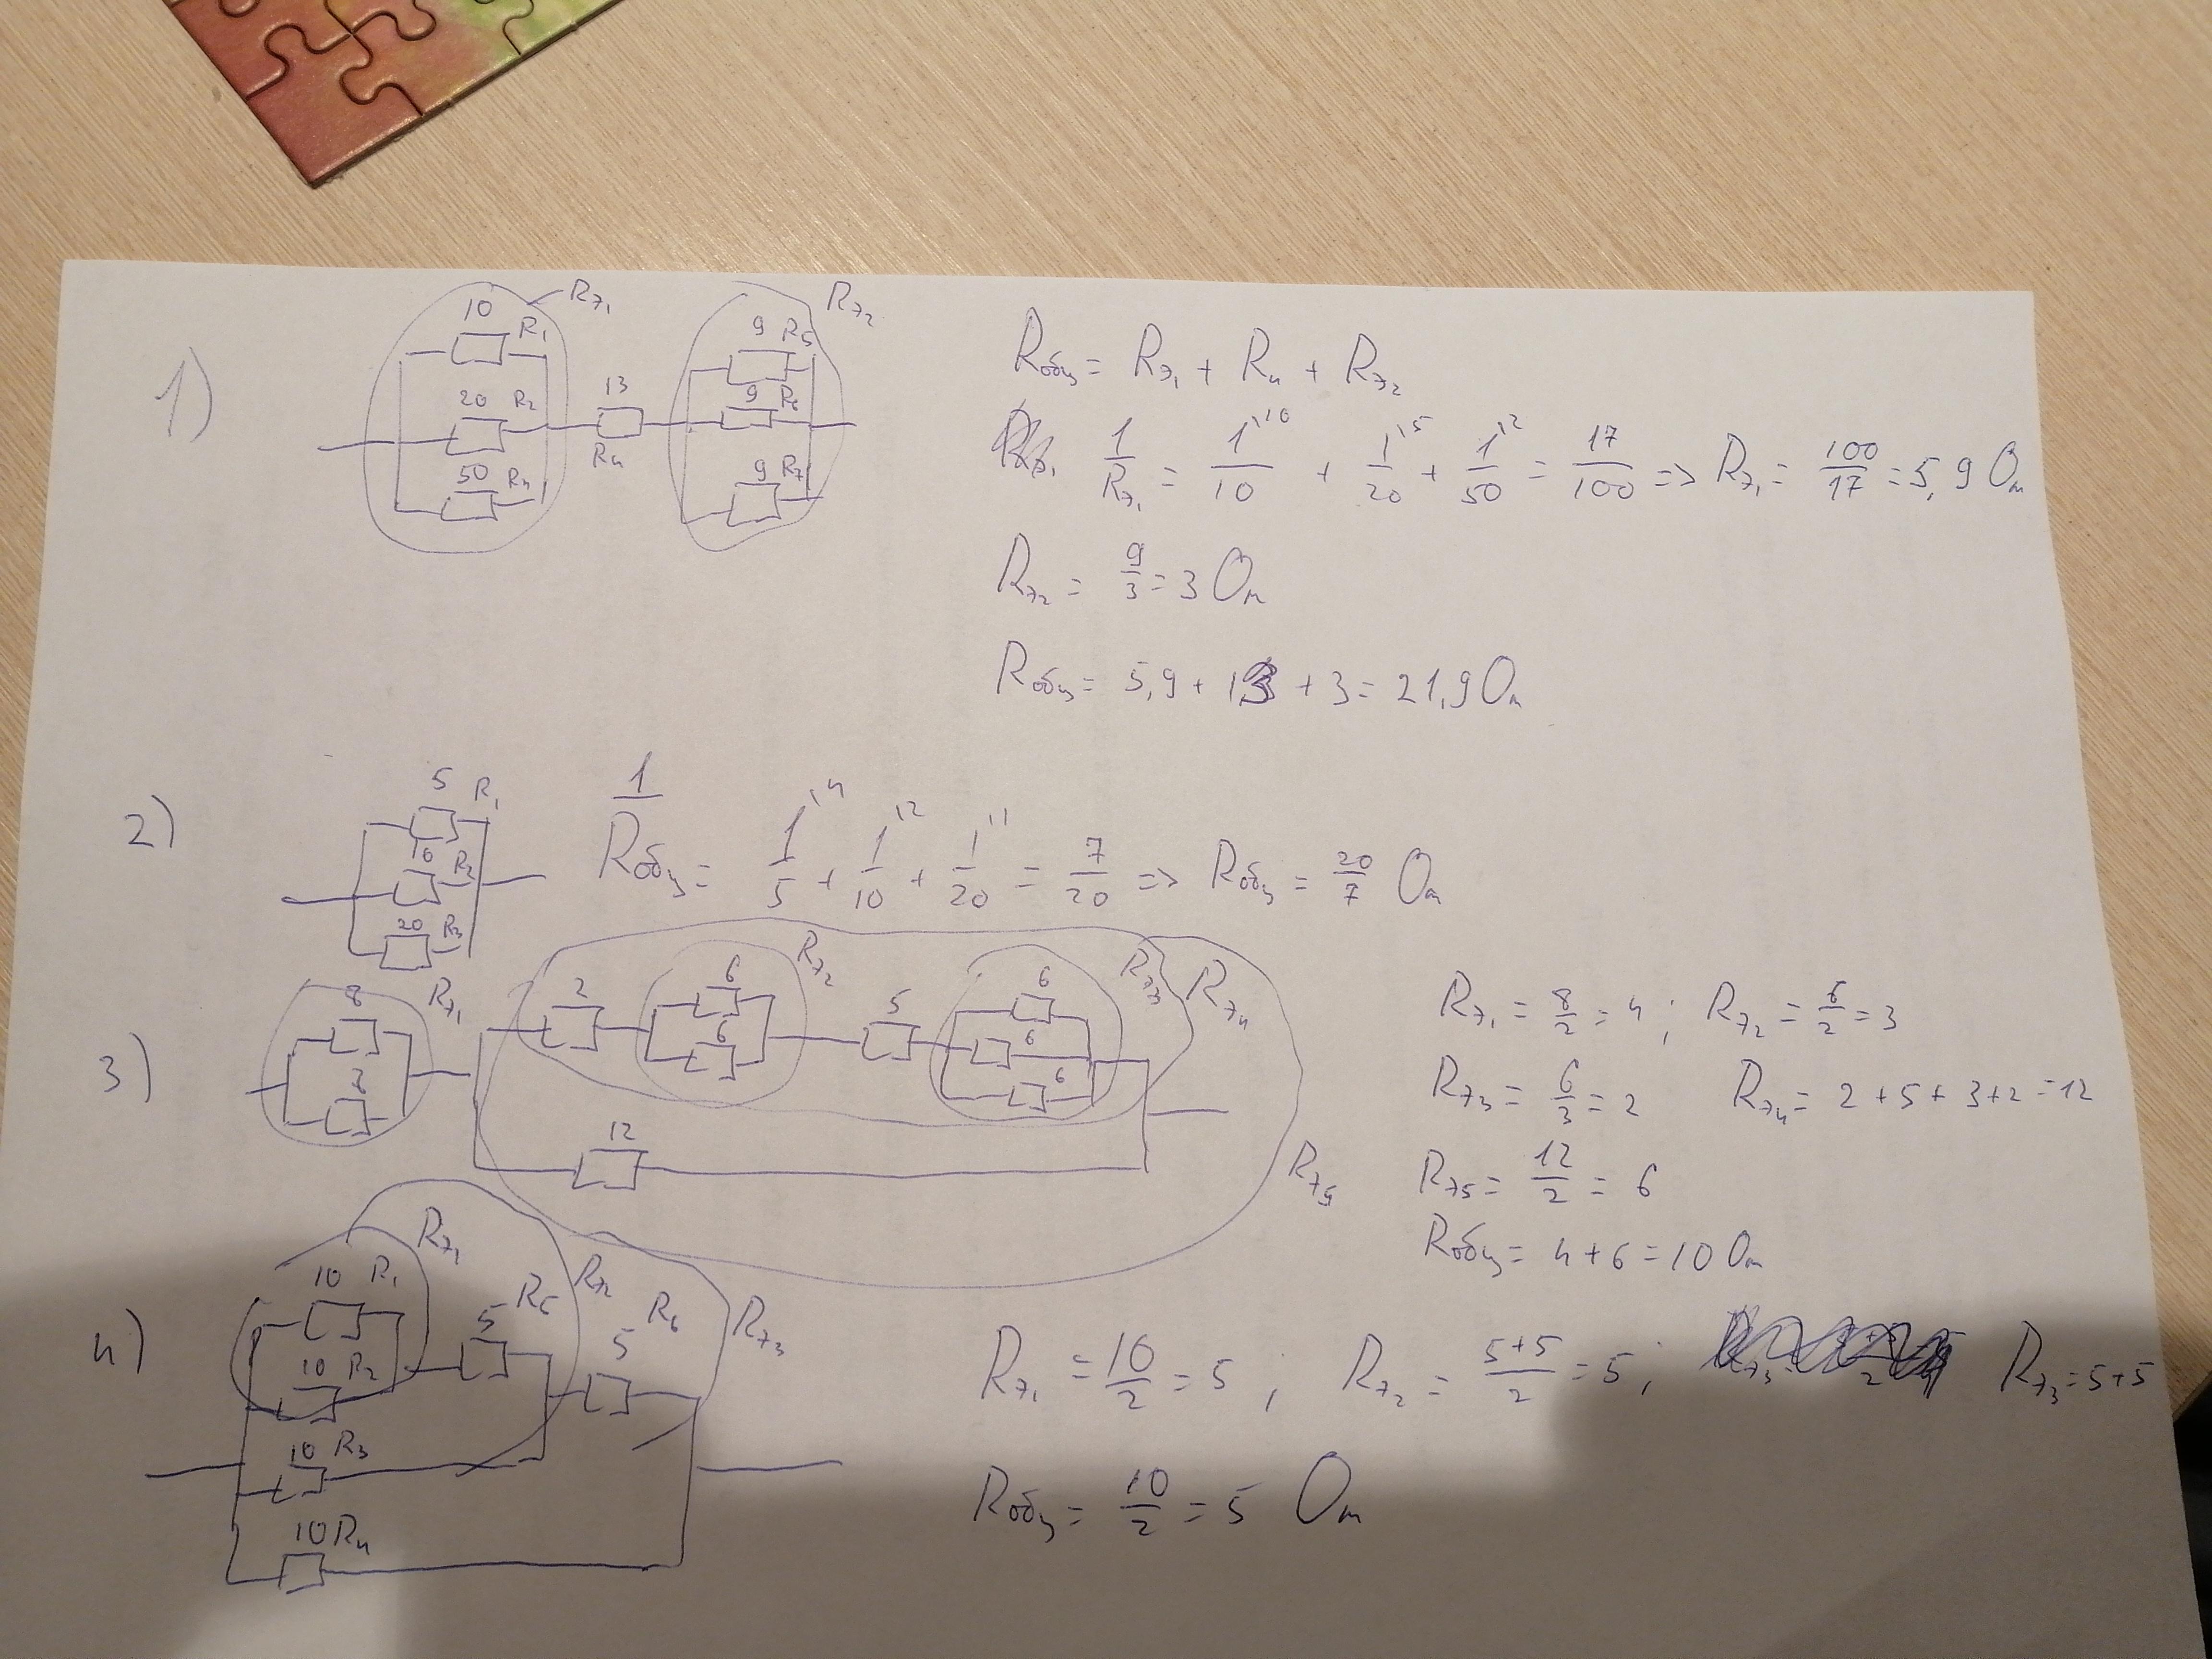 1)
10 R₁ Rэ₁
20 R₂
50 R₄
13 R₄
9 R₅ Rэ₂
9 R₆
9 R₇
Rобщ = Rэ₁ + R₄ + Rэ₂
1/Rэ₁ = 1\10/10 + 1\5/20 + 1\2/50 = 17/100 => Rэ₁ = 100/17 = 5,9 Ом
Rэ₂ = 9/3 = 3 Ом
Rобщ = 5,9 + 13 + 3 = 21,9 Ом
2)
5 R₁
10 R₂
20 R₃
1/Rобщ = 1\4/5 + 1\2/10 + 1\1/20 = 7/20 => Rобщ = 20/7 Ом
3)
8 Rэ₁
2 6 Rэ₂ 5 6 Rэ₃ Rэ₄
6 6
6
12 Rэ₅
Rэ₁ = 8/2 = 4 ; Rэ₂ = 6/2 = 3
Rэ₃ = 6/3 = 2 Rэ₄ = 2 + 5 + 3 + 2 = 12
Rэ₅ = 12/2 = 6
Rобщ = 4 + 6 = 10 Ом
4)
10 R₁ Rэ₁
10 R₂ 5 R₅ Rэ₂
5 R₆ Rэ₃
10 R₃
10 R₄
Rэ₁ = 10/2 = 5 ; Rэ₂ = 5+5/2 = 5 ; Rэ₃ = 5+5
Rобщ = 10/2 = 5 Ом